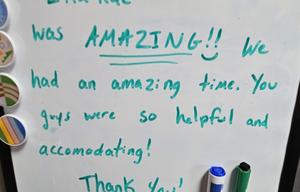 was AMAZING!! We
had an amazing time. You
guys were so helpful and
accomodating!
Thank You!